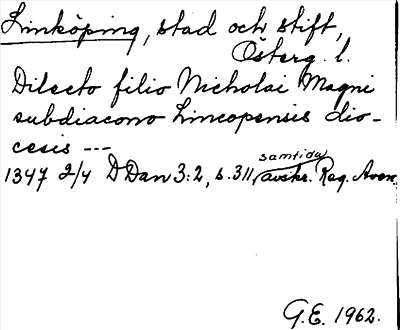 Linköping, stad och stift,
Österg. l.
Dilecto filio Nicholai Magni
subdiacono Lincopensis dio-
cesis ---
samtida
1347 2/4 DDan 3:2, s. 311, avskr. Reg. Aven.
G.E. 1962.